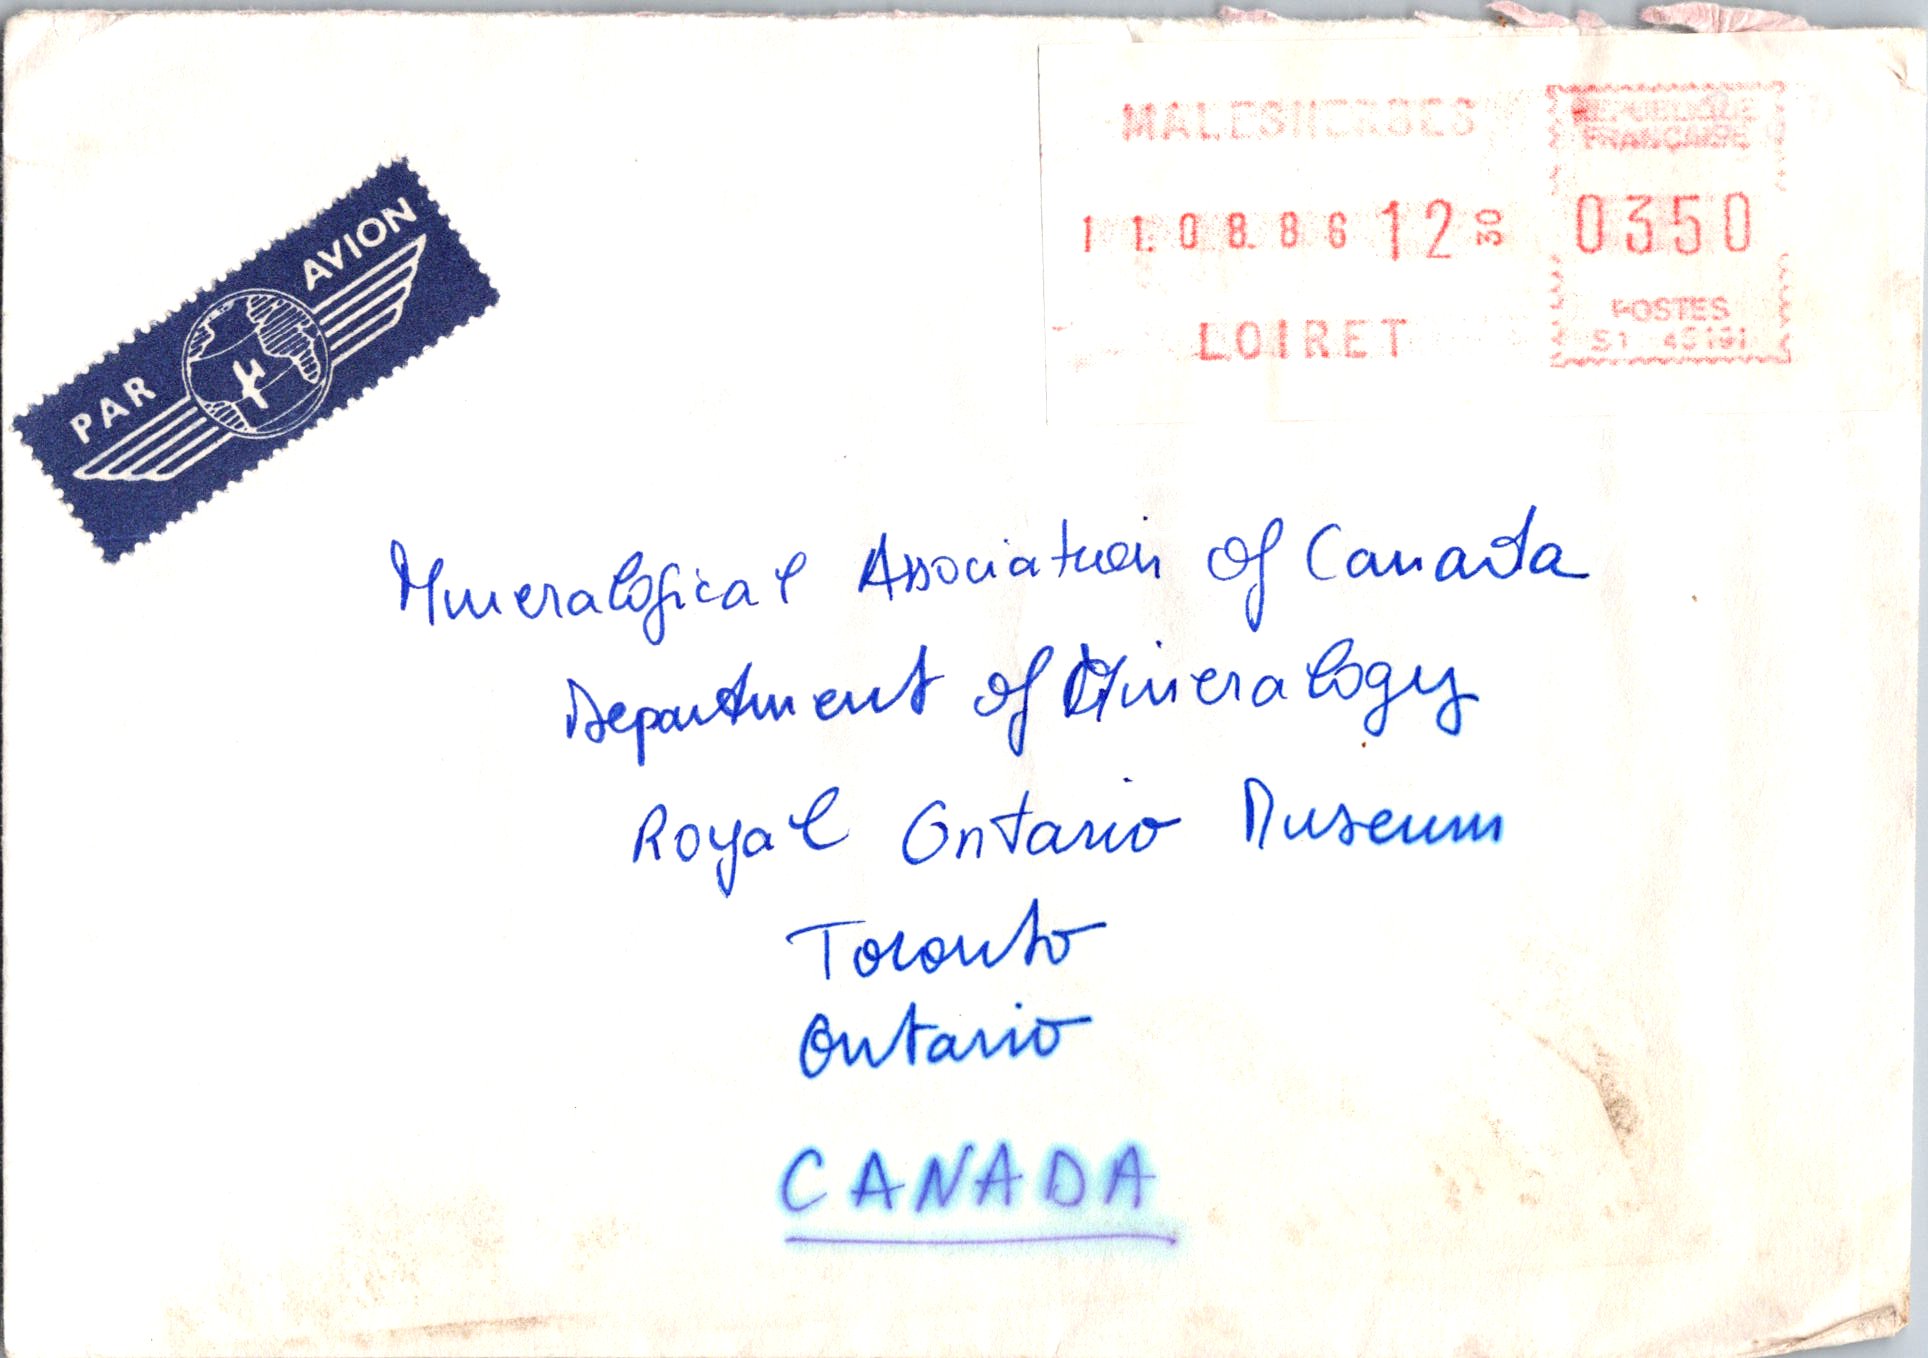 MALESHERBES
REPUBLIQUE
FRANÇAISE
11.08.86 12 30
0350
LOIRET
POSTES
PAR AVION
Mineralogical Association of Canada
Department of Mineralogy
Royal Ontario Museum
Toronto
Ontario
CANADA